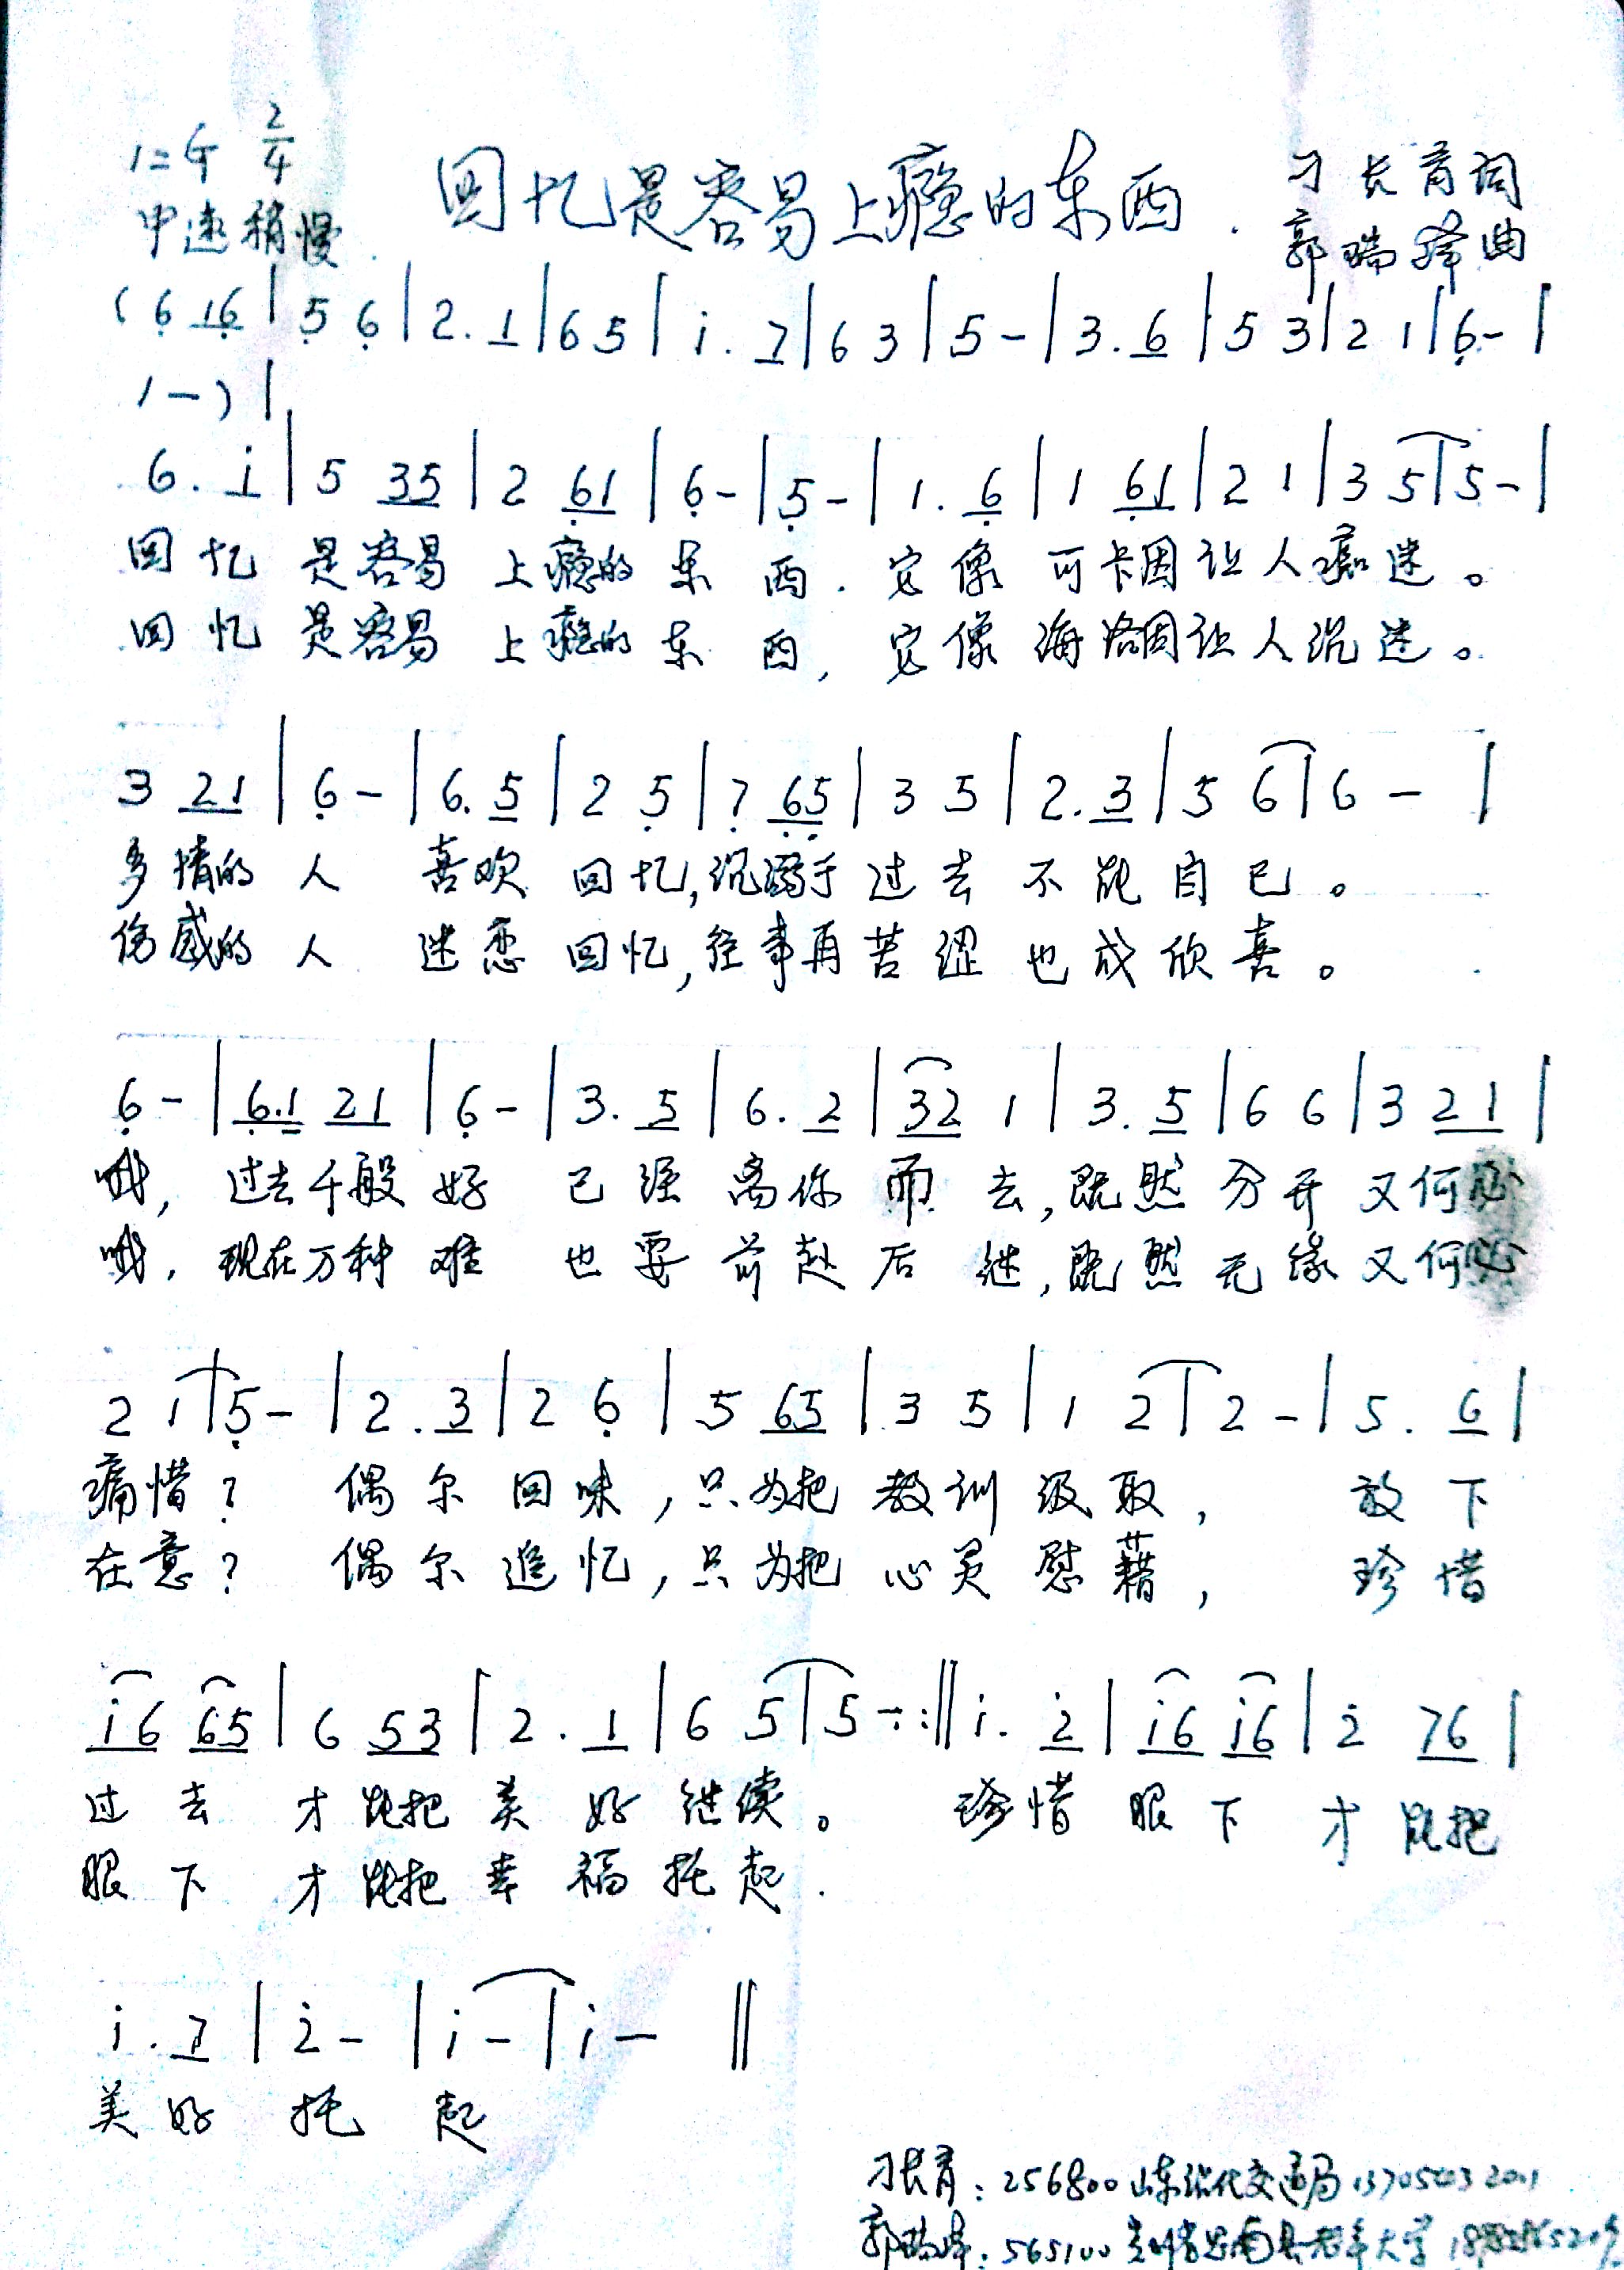 1=G 2/4
回忆是容易上瘾的东西.
刁长育词
中速稍慢.
郭瑞择曲
(6̣ 1̲6̣̲ | 5̣ 6̣ | 2. 1̲ | 6 5 | i. 7̲ | 6 3 | 5 - | 3. 6̲ | 5 3 | 2 1 | 6̣ - |
1 -) |
6. i̲ | 5 3̲5̲ | 2 6̣̲1̲ | 6̣ - | 5̣ - | 1. 6̣̲ | 1 6̣̲1̲ | 2 1 | 3 5 | 5 - |
回忆是容易上瘾的东西.它像可卡因让人痴迷。
回忆是容易上瘾的东西,它像海洛因让人沉迷。
3 2̲1̲ | 6̣ - | 6. 5̲ | 2 5̣ | 7̣ 6̣̲5̣̲ | 3 5 | 2. 3̲ | 5 6 | 6 - |
多情的人 喜欢回忆,沉溺于过去不能自已。
伤感的人 迷恋回忆,往事再苦涩也成欣喜。
6̣ - | 6̣̲.1̲ 2̲1̲ | 6̣ - | 3. 5̲ | 6. 2̲ | 3̲2̲ 1 | 3. 5̲ | 6 6 | 3 2̲1̲ |
哦,过去千般好 已经离你而去,既然分开又何必
哦,现在万种难 也要前赴后继,既然无缘又何必
2 1 | 5̣ - | 2. 3̲ | 2 6̣ | 5 6̲5̲ | 3 5 | 1 2 | 2 - | 5. 6̲ |
痛惜? 偶尔回味,只为把教训级取, 放下
在意? 偶尔追忆,只为把心灵慰藉, 珍惜
i̲6̲ 6̲5̲ | 6 5̲3̲ | 2. 1̲ | 6 5 | 5 - :‖ i. 2̲̇ | i̲6̲ i̲6̲ | 2̇ 7̲6̲ |
过去 才能把美好继续。 珍惜眼下才能把
眼下 才能把幸福托起.
i. 7̲ | 2̇ - | i - | i - ‖
美好托起
刁长育:256800山东沾化交通局
565100 老年大学